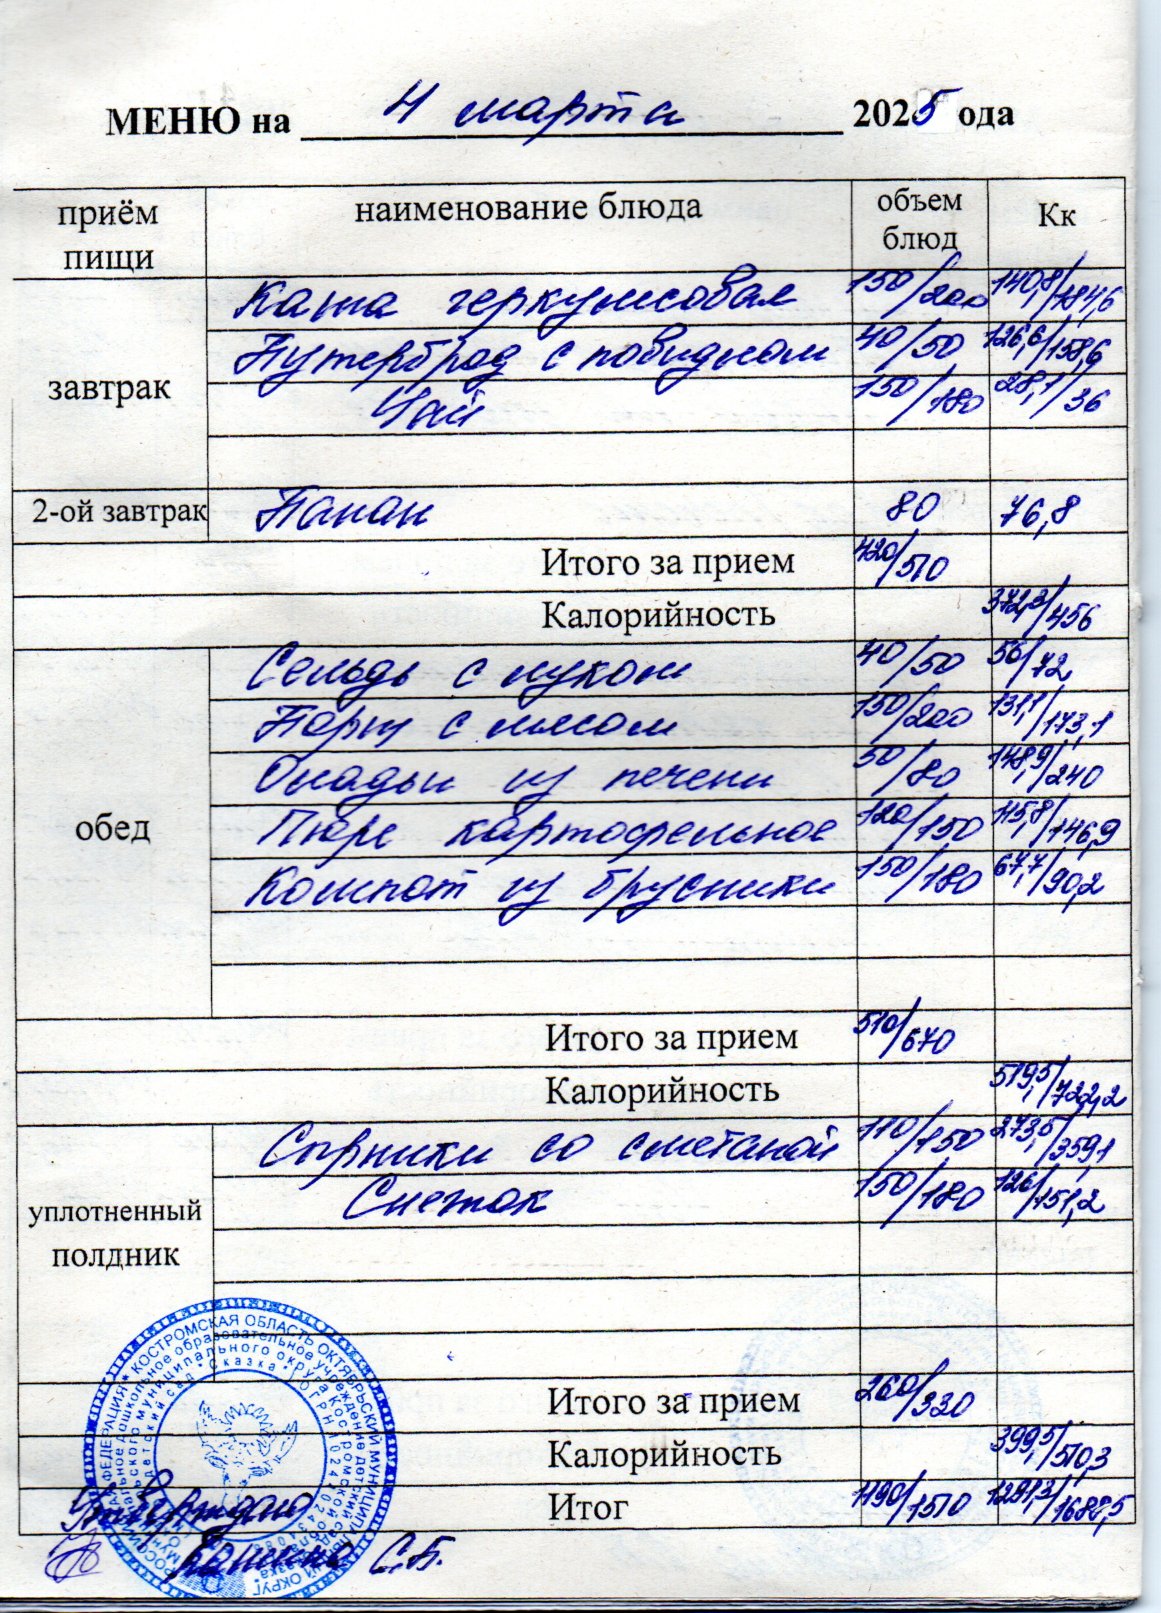 МЕНЮ на 4 марта 2025 ода
приём пищи наименование блюда объем блюд Кк
завтрак
Каша геркулесовая 150/200 140,8/184,6
Бутерброд с повидлом 40/50 126,6/158,6
Чай 150/180 28,1/36
2-ой завтрак Банан 80 76,8
Итого за прием 420/510
Калорийность 372,3/456
обед
Сельдь с луком 40/50 56/72
Борщ с мясом 150/200 131,1/173,1
Оладьи из печени 50/80 148,9/240
Пюре картофельное 120/150 115,8/146,9
Компот из брусники 150/180 67,7/90,2
Итого за прием 510/670
Калорийность 519,5/722,2
уплотненный полдник
Сырники со сметаной 110/150 273,5/359,1
Снежок 150/180 126/151,2
Итого за прием 260/330
Калорийность 399,5/510,3
Итог 1190/1510 1291,3/1688,5
КОСТРОМСКАЯ ОБЛАСТЬ ОКТЯБРЬСКИЙ МУНИЦИПАЛЬНЫЙ ОКРУГ
дошкольное образовательное учреждение детский сад
муниципального округа Костромской области
детский сад "Сказка"
Утверждаю
С.Б.